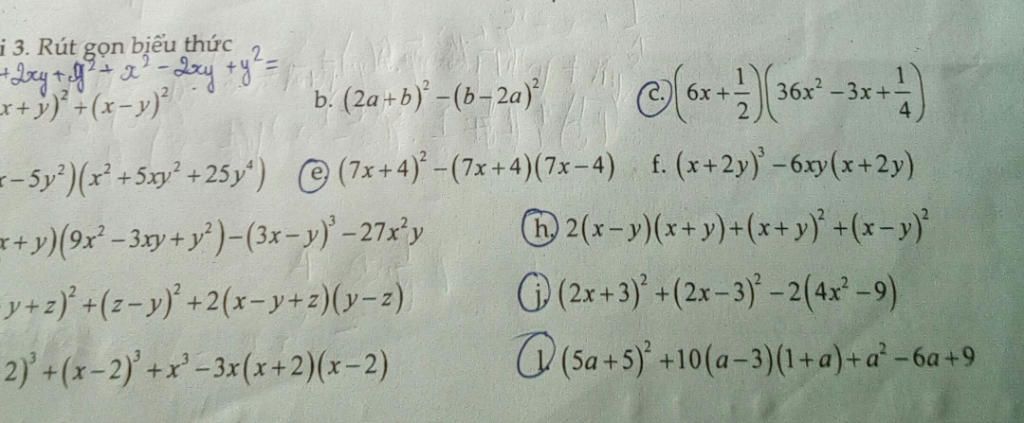 i 3. Rút gọn biểu thức
+2xy+y²+x²-2xy+y²=
x+y)²+(x-y)² b. (2a+b)²-(b-2a)² c. (6x+1/2)(36x²-3x+1/4)
-5y²)(x²+5xy²+25y⁴) e (7x+4)²-(7x+4)(7x-4) f. (x+2y)³-6xy(x+2y)
x+y)(9x²-3xy+y²)-(3x-y)³-27x²y h. 2(x-y)(x+y)+(x+y)²+(x-y)²
y+z)²+(z-y)²+2(x-y+z)(y-z) j. (2x+3)²+(2x-3)²-2(4x²-9)
2)³+(x-2)³+x³-3x(x+2)(x-2) l. (5a+5)²+10(a-3)(1+a)+a²-6a+9